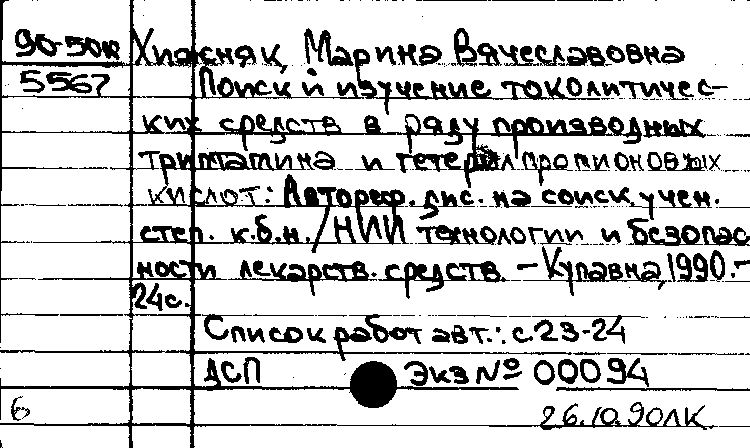 90-50к Хижсняк, Марина Вячеславовна
5567 Поиск и изучение токолитичес-
ких средств в ряду производных
триптамина и гетерилпропионовых
кислот: Автореф. дис. на соиск. учен.
степ. к.б.н. / НИИ технологии и безопас
ности лекарств. средств. – Купавна, 1990. –
24с.
Список работ авт.: с. 23-24
ДСП Экз № 00094
б 26.10.90ЛК